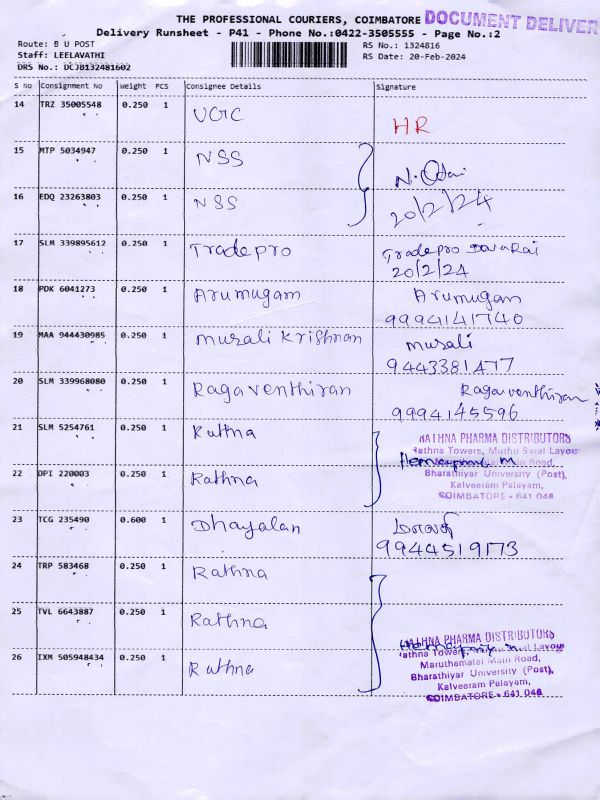 THE PROFESSIONAL COURIERS, COIMBATORE DOCUMENT DELIVER
Delivery Runsheet - P41 - Phone No.:0422-3505555 - Page No.:2
Route: B U POST RS No.: 1324816
Staff: LEELAVATHI RS Date: 20-Feb-2024
DRS No.: DCJB132481602
S No Consignment No Weight PCS Consignee Details Signature
14 TRZ 35005548 0.250 1 UGC HR
15 MTP 5034947 0.250 1 NSS N.
16 EDQ 23263803 0.250 1 NSS 20/2/24
17 SLM 339895612 0.250 1 Tradepro Tradepro
20/2/24
18 PDK 6041273 0.250 1 Arumugam Arumugam
9994141740
19 MAA 944430985 0.250 1 Murali Krishnan Murali
9443381477
20 SLM 339968080 0.250 1 Ragaventhiran Ragaventhiran
9994145596
21 SLM 5254761 0.250 1 Rathna RATHNA PHARMA DISTRIBUTORS
Rathna Towers, Layou
Main Road,
22 DPI 220003 0.250 1 Rathna Bharathiyar University (Post),
Kalveeram Palayam,
COIMBATORE - 641 046
23 TCG 235490 0.600 1 Dhayalan
9944519173
24 TRP 583468 0.250 1 Rathna
25 TVL 6643887 0.250 1 Rathna RATHNA PHARMA DISTRIBUTORS
Layout
26 IXM 505948434 0.250 1 Rathna Maruthamalai Main Road,
Bharathiyar University (Post),
Kalveeram Palayam,
COIMBATORE - 641 046